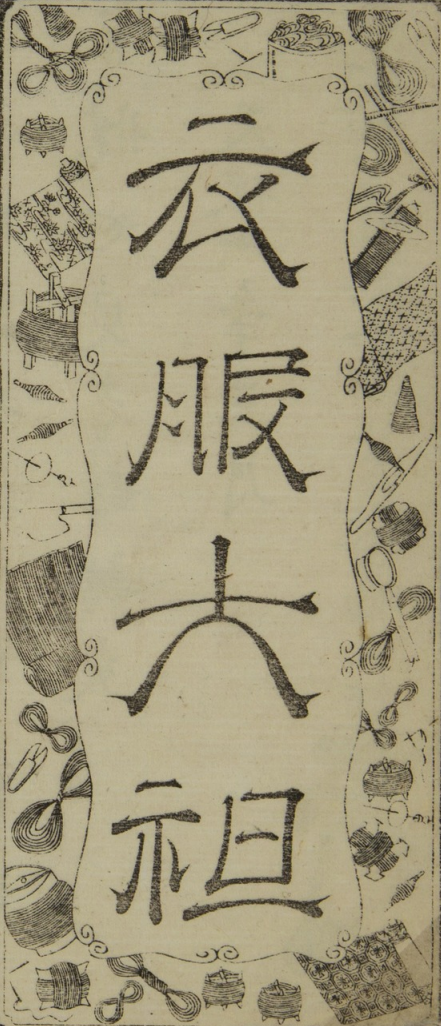 衣服大祖